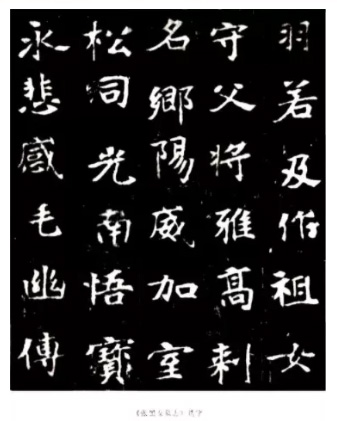 羽若及作祖女
守父将雅高刺
名鄉陽威加室
松同光南悟寶
永悲感毛幽傳